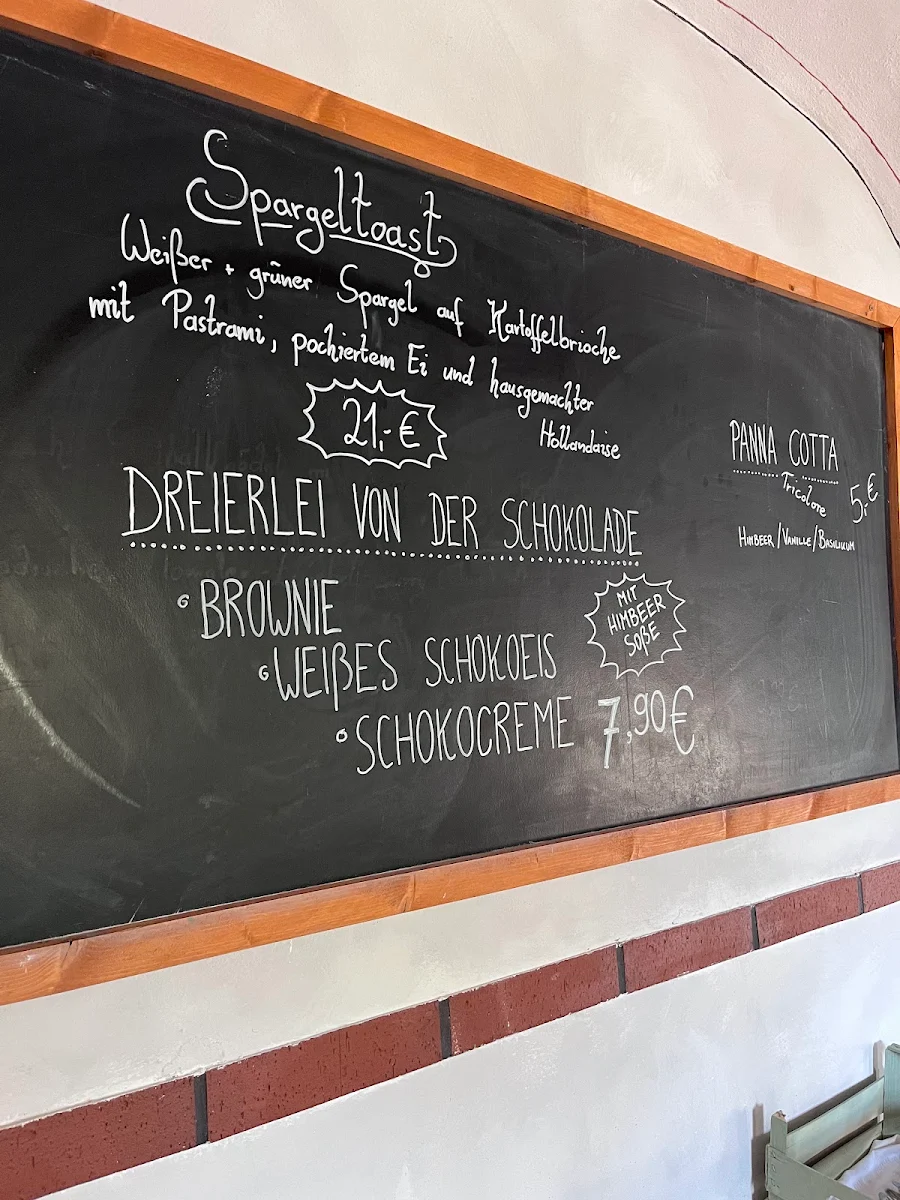 Spargeltoast
Weißer + grüner Spargel auf Kartoffelbrioche
mit Pastrami, pochiertem Ei und hausgemachter
Hollandaise
21,- €
DREIERLEI VON DER SCHOKOLADE
BROWNIE
WEIßES SCHOKOEIS
SCHOKOCREME 7,90€
MIT
HIMBEER
SOßE
PANNA COTTA
Tricolore
5,- €
HIMBEER/VANILLE/BASILIKUM